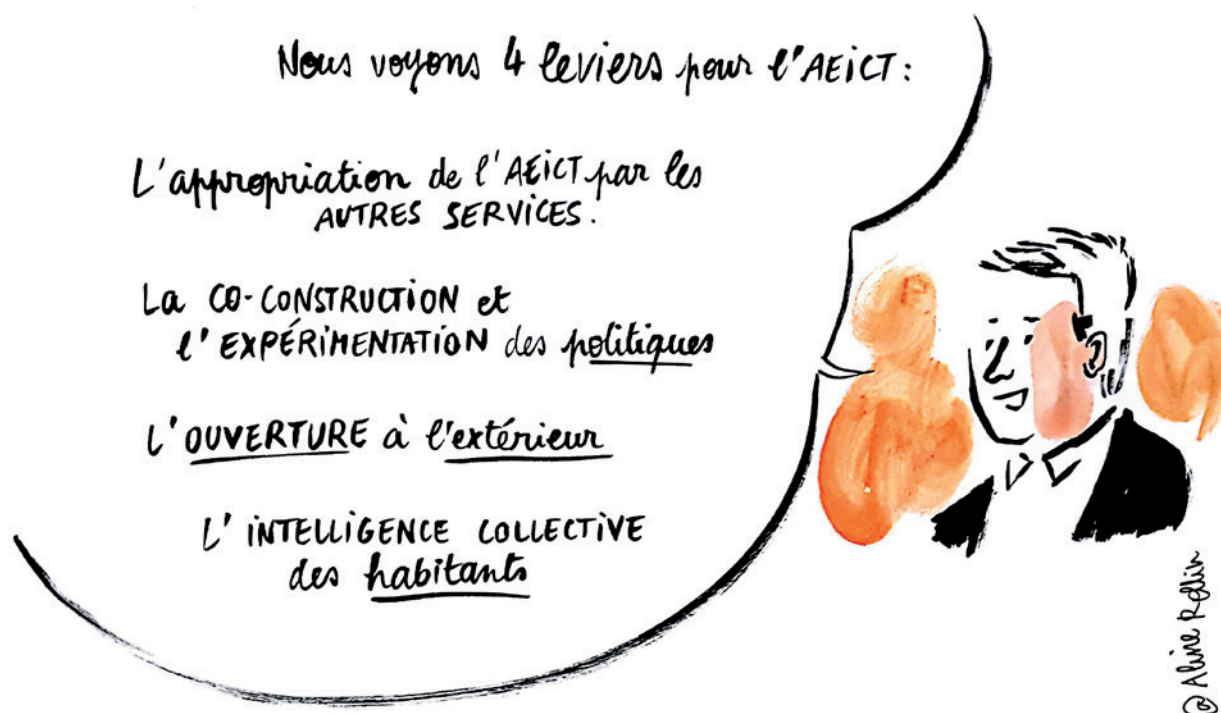 Nous voyons 4 leviers pour l'AEiCT :
L'appropriation de l'AEiCT par les
AUTRES SERViCES.
La CO-CONSTRUCTION et
l'EXPÉRiMENTATiON des politiques
L'OUVERTURE à l'extérieur
L'iNTELLiGENCE COLLECTiVE
des habitants
@ Aline Rollin